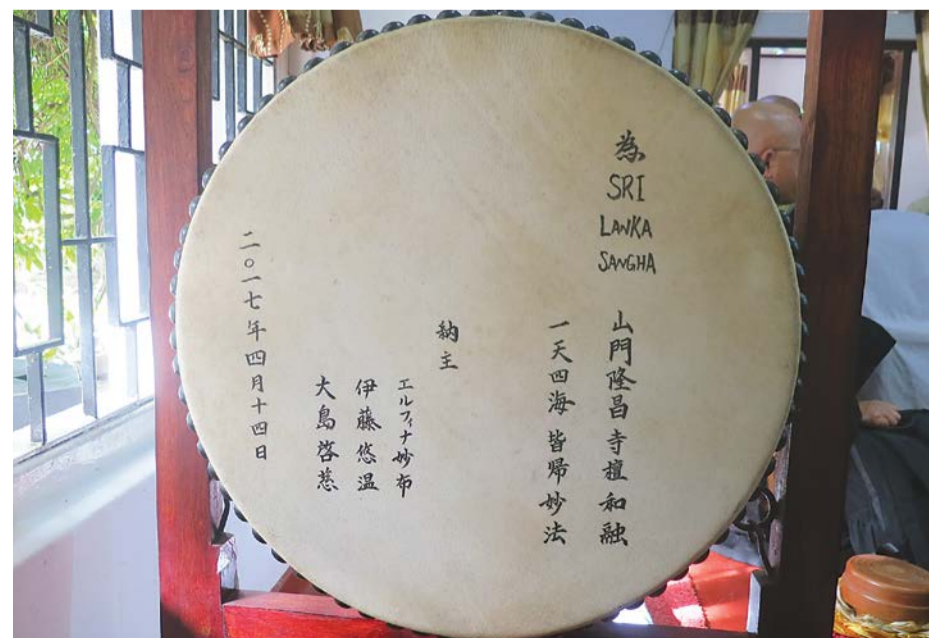 為
SRI
LANKA
SANGHA
山門隆昌 寺檀和融
一天四海 皆帰妙法
納主
エルフィナ妙布
伊藤悠温
大島啓慈
二〇一七年四月十四日